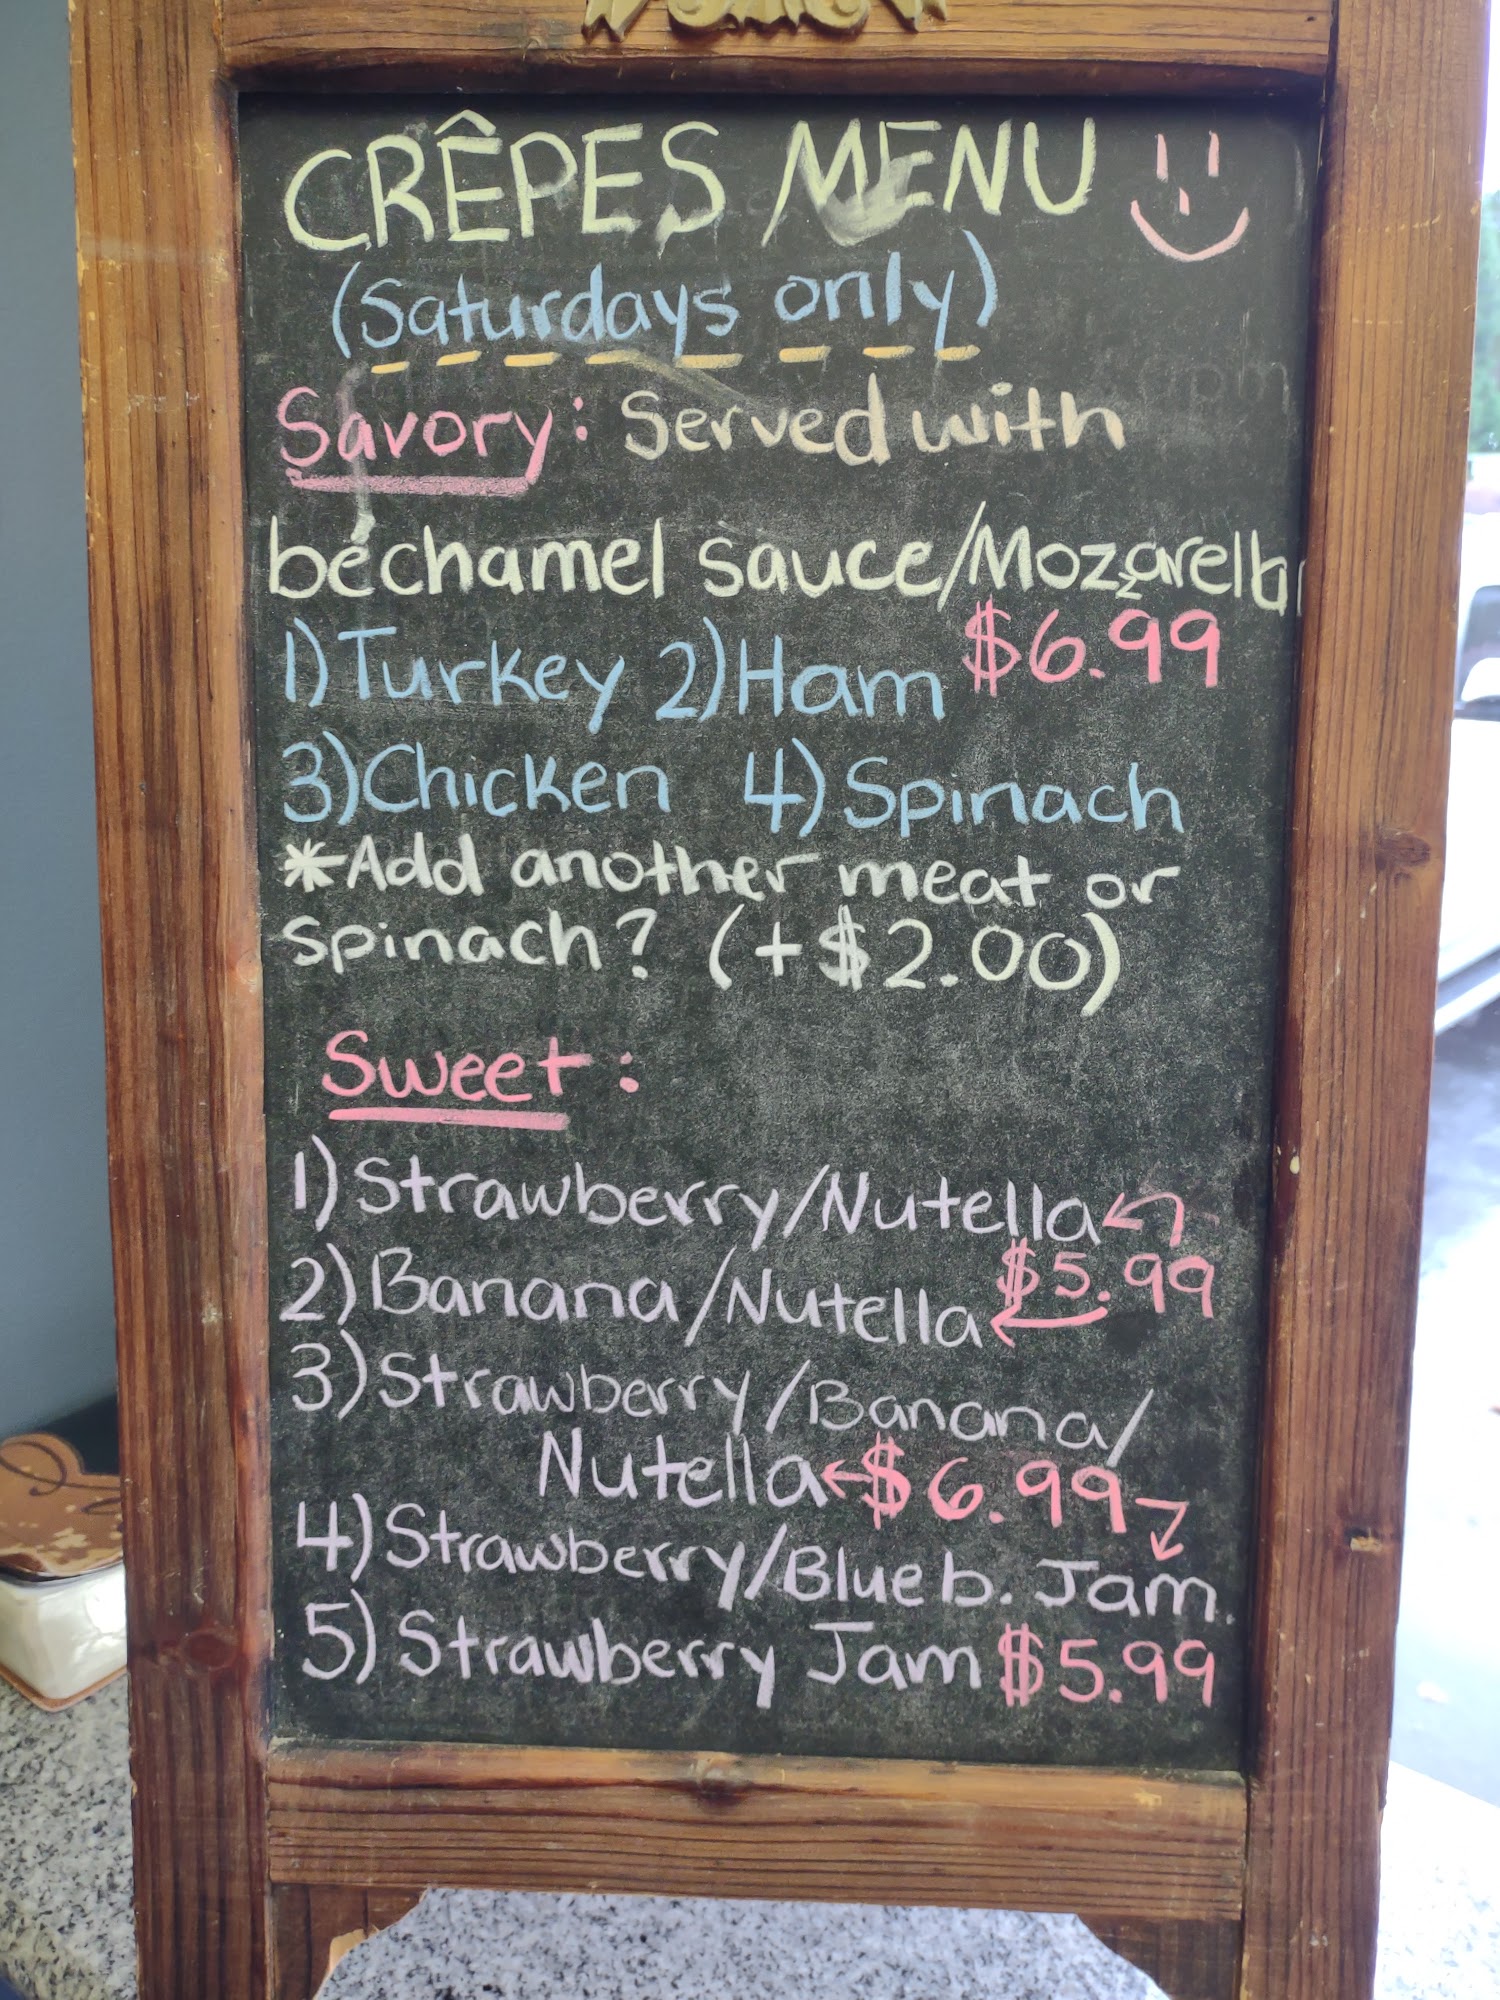 CRÊPES MENU
(Saturdays only)
Savory: Served with
béchamel sauce/Mozzarella
1) Turkey 2) Ham $6.99
3) Chicken 4) Spinach
*Add another meat or
spinach? (+$2.00)
Sweet:
1) Strawberry/Nutella
2) Banana/Nutella $5.99
3) Strawberry/Banana/
Nutella $6.99
4) Strawberry/Blueb. Jam.
5) Strawberry Jam $5.99